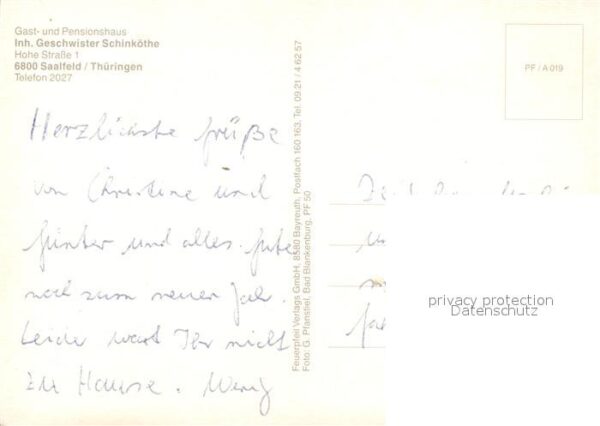 Gast- und Pensionshaus
Inh. Geschwister Schinköthe
Hohe Straße 1
6800 Saalfeld / Thüringen
Telefon 2027
Herzlichste Grüße
von Christine und
Günter und alles Gute
noch zum neuen Jahr.
Leider wart Ihr nicht
zu Hause. Wenig
Feuerpfeil Verlags GmbH, 8580 Bayreuth, Postfach 160 163, Tel. 09 21 / 4 62 57
Foto: G. Pfanstiel, Bad Blankenburg, PF 50
PF / A 019
privacy protection
Datenschutz